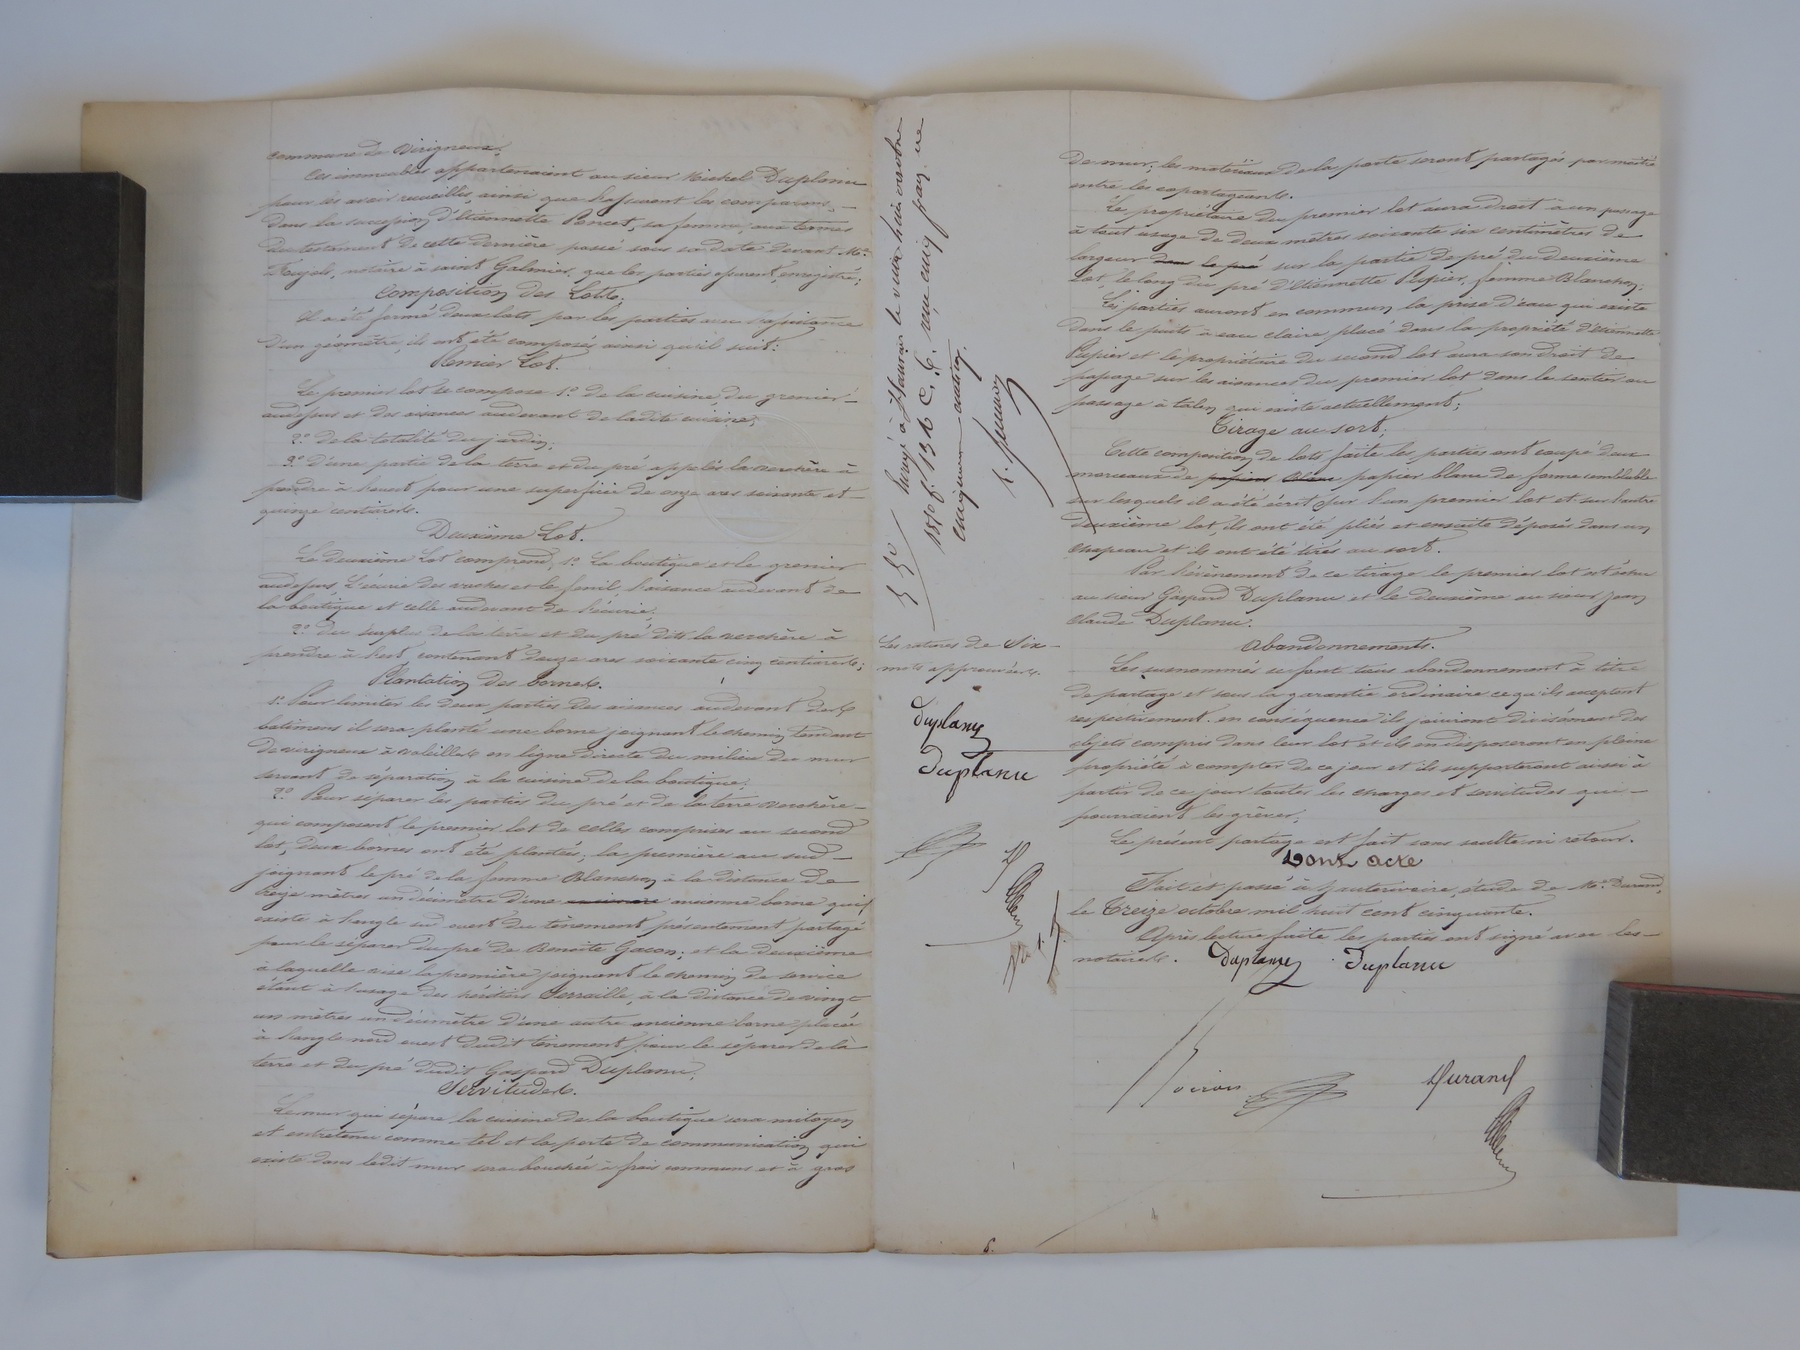 commune de Virigneux.
Ces immeubles appartenaient au sieur Michel Duplanu
pour les avoir recueillis, ainsi que l'assurent les comparans,
dans la succession d'Etiennette Poncet, sa femme, aux termes
du testament de cette dernière passé sous sa date devant Me
notaire à saint Galmier, que les parties assurent enregistré;
Composition des Lots.
Il a été formé deux lots par les parties avec l'assistance
d'un géomètre, ils ont été composés ainsi qu'il suit:
Premier Lot.
Le premier lot se compose 1.o de la cuisine, du grenier
audessus et des aisances audevant de ladite cuisine;
2.o de la totalité du jardin;
3.o D'une partie de la terre et du pré appelés la verchère à
prendre à l'ouest pour une superficie de onze ares soixante et
quinze centiares.
Deuxième Lot.
Le deuxième Lot comprend, 1.o La boutique et le grenier
audessus L'écurie des vaches et le fenil, l'aisance audevant de
la boutique et celle audevant de l'écurie;
2.o du surplus de la terre et du pré dits la verchère à
prendre à l'est contenant douze ares soixante cinq centiares;
Plantation des bornes.
1.o Pour limiter les deux parties des aisances audevant des
batimens il sera planté une borne joignant le chemin tendant
de virigneux à valeilles en ligne directe du milieu du mur
servant de séparation à la cuisine de la boutique;
2.o Pour séparer les parties du pré et de la terre verchère
qui composent le premier lot de celles comprises au second
lot, deux bornes ont été plantées; la première au sud
joignant le pré de la femme Blanchon à la distance de
treize mètres un décimètre d'une ancienne borne qui
existe à l'angle sud ouest du tènement présentement partagé
pour le séparer du pré de Benoite Gacon; et la deuxième
à laquelle vise la première joignant le chemin de service
étant à l'usage des héritiers à la distance de vingt
un mètres un décimètre d'une autre ancienne borne placée
à l'angle nord ouest dudit tènement pour le séparer de la
terre et du pré dudit Gaspard Duplanu.
Servitudes.
Le mur qui sépare la cuisine de la boutique sera mitoyen
et entretenu comme tel et la porte de communication qui
existe dans ledit mur sera bouchée à frais communs et à gros
1850 f.o 13 R C. 6. reçu cinq francs
cinquante centimes
Les ratures de Six
mots approuvées.
Duplany
Duplanu
de mur; les matériaux de la porte seront partagés par moitié
entre les copartageants.
Le propriétaire du premier lot aura droit à un passage
à tout usage de deux mètres soixante six centimètres de
largeur dans le pré sur la partie de pré du deuxième
lot, le long du pré d'Etiennette Papier, femme Blanchon;
Les parties auront en commun la prise d'eau qui existe
dans le puits à eau claire placé dans la propriété d'Etiennette
Papier et le propriétaire du second lot aura son droit de
passage sur les aisances du premier lot dans le sentier ou
passage à talon qui existe actuellement;
Tirage au sort;
Cette composition de lots faite les parties ont coupé deux
morceaux de papiers blanc papier blanc de forme semblable
sur lesquels il a été écrit sur l'un premier lot et sur l'autre
deuxième lot, ils ont été pliés et ensuite déposés dans un
chapeau et ils ont été tirés au sort.
Par l'événement de ce tirage le premier lot est échu
au sieur Gaspard Duplanu et le deuxième au sieur Jean
Claude Duplanu.
Abandonnements.
Les susnommés se font tous abandonnement à titre
de partage et sous la garantie ordinaire ce qu'ils acceptent
respectivement. en conséquence ils jouiront divisément des
objets compris dans leur lot et ils en disposeront en pleine
propriété à compter de ce jour et ils supporteront aussi à
partir de ce jour toutes les charges et servitudes qui
pourraient les grèver;
Le présent partage est fait sans soulte ni retour.
Dont acte
Fait et passé à étude de Me Durand,
le Treize octobre mil huit cent cinquante.
Après lecture faite les parties ont signé avec les
notaires. Duplany Duplanu
Durand
6.